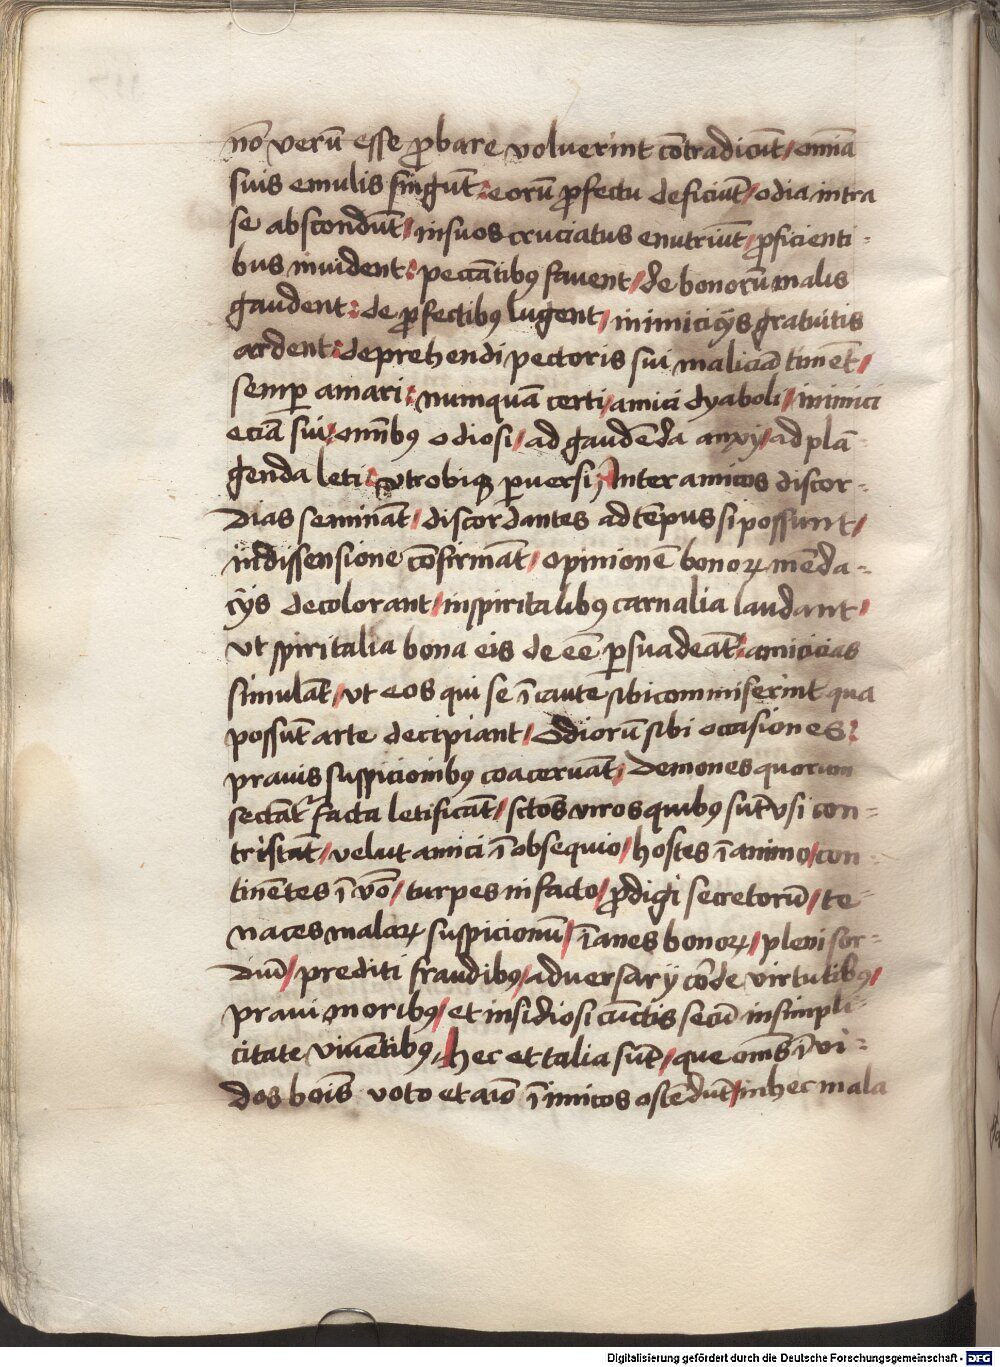 nō verū esse ꝓbare voluerint cōtradicūt / omnia
suis emulis fingūt : eorū ꝓfectu deficiūt / odia intra
se abscondūt / in suos cruciatus enutriūt / ꝓficienti=
bus invident : peccātibꝫ favent / de bonorū malis
gaudent : de ꝓfectibꝫ lugent / inimicicijs gratuitis
ardent : deprehendi pectoris sui maliciā timēt /
semꝑ amari : numquā certi / amici dyaboli / inimici
eciā sui : omībꝫ odiosi / ad gaudēda anxij / ad plā=
genda leti : utrobiqꝫ ꝑversi / Inter amicos discor=
dias semināt / discordantes ad tēpus si possunt /
in dissensione cōfirmāt / opinionē bonoꝝ mēda=
cijs decolorant / in spiritalibꝫ carnalia laudant /
ut spiritalia bona eis deēē ꝑsuadeāt : amicicias
simulāt / ut eos qui se īcaute sibi commiserint qua
possūt arte decipiant / Odiorū sibi occasiones :
pravis suspicionibꝫ coacervāt / Demones quorum
sectāt̉ facta letificāt / sctōs viros quibꝫ sūt visi con=
tristāt / velut amici ī obsequio / hostes ī animo / con=
tinētes ī vō / turpes in facto / ꝓdigi secretorū / te=
naces malaꝝ suspicionū / īanes bonoꝝ / pleni sor=
diū / prediti fraudibꝫ / adversarij corde virtutibꝫ /
pravi moribꝫ / et insidiosi cūctis secū in simpli=
citate viventibꝫ / hec et talia sūt / que omēs īvi=
dos bōis voto et aīo īimicos ostēdūt / in hec mala